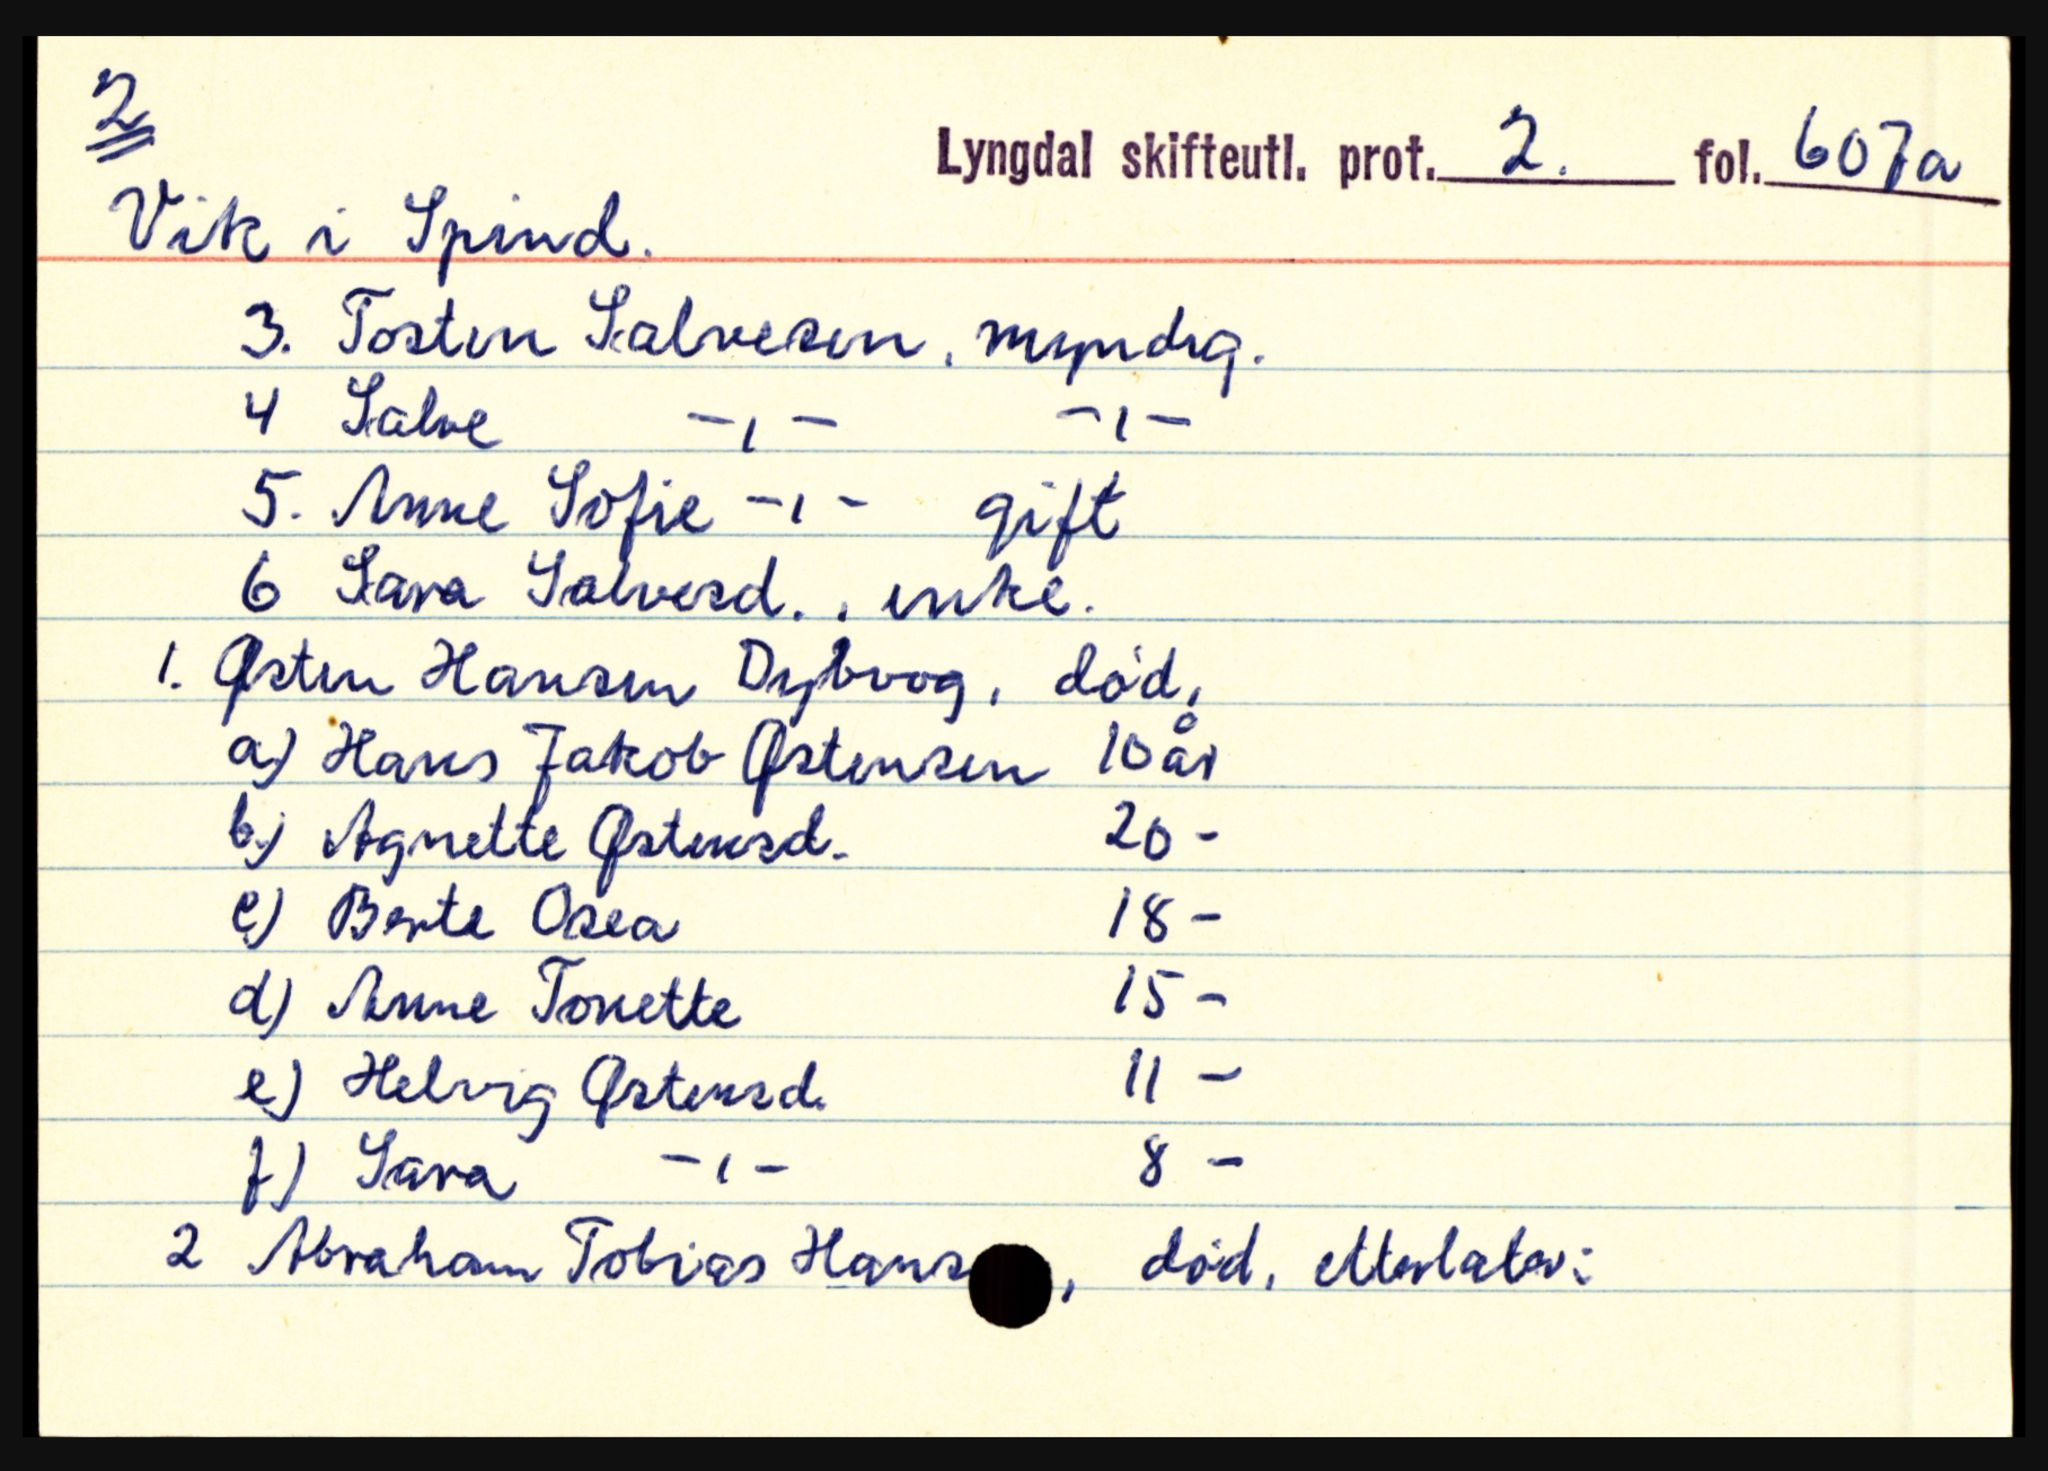 2
Lyngdal skifteutl. prot. 2. fol. 607a
Vik i Spind.
3. Tosten Salvesen, myndig.
4 Salve -ı- -ı-
5. Anne Sofie -ı- gift
6 Sara Salvesd., enke.
1. Østen Hansen Dybvog, død,
a) Hans Jakob Østensen 10 år
b) Agnette Østensd. 20 -
c) Berte Osea 18 -
d) Anne Tonette 15 -
e) Helvig Østensd. 11 -
f) Sara -ı- 8 -
2 Abraham Tobias Hans , død, etterlater: